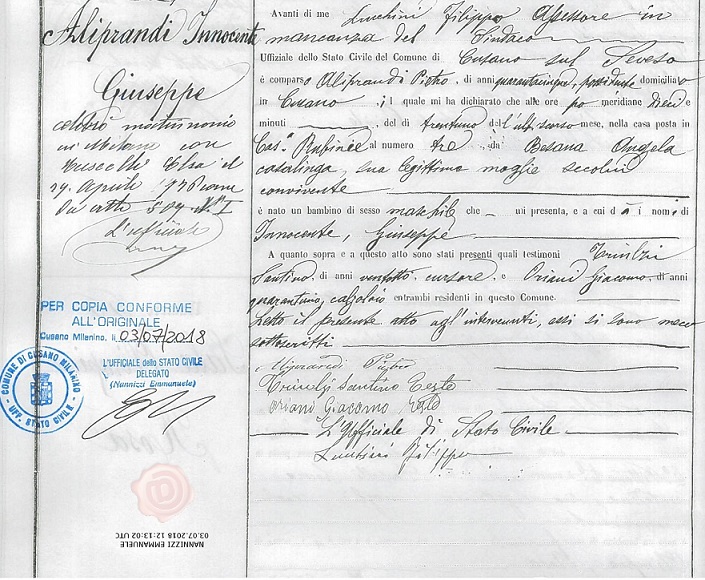 Aliprandi Innocente
Giuseppe
celebrò matrimonio
in Milano con
Elsa il
19 Aprile 1936 come
da atto 509 I
L'ufficiale
PER COPIA CONFORME
ALL'ORIGINALE
Cusano Milanino, li 03/07/2018
L'UFFICIALE dello STATO CIVILE
DELEGATO
(Nannizzi Emmanuele)
COMUNE DI CUSANO MILANINO
UFF. STATO CIVILE
NANNIZZI EMMANUELE
03.07.2018 12:13:02 UTC
Avanti di me Lucchini Filippo Assessore in
mancanza del Sindaco
Uffiziale dello Stato Civile del Comune di Cusano sul Seveso
è comparso Aliprandi Pietro, di anni quarantacinque, possidente domiciliato
in Cusano, il quale mi ha dichiarato che alle ore po meridiane dieci e
minuti del dì trentuno dell'ult. scorso mese, nella casa posta in
Casa Rubinee al numero tre da Besana Angela
casalinga, sua legittima moglie secolui
convivente
è nato un bambino di sesso maschile che mi presenta, e a cui dà i nomi di
Innocente, Giuseppe
A quanto sopra e a questo atto sono stati presenti quali testimoni Trivulzi
Santino, di anni ventotto, cursore e Oriani Giacomo, di anni
quarantuno, calzolaio entrambi residenti in questo Comune.
Letto il presente atto agl'intervenuti, essi si sono meco
sottoscritti
Aliprandi Pietro
Trivulzi Santino Teste
Oriani Giacomo Teste
L'Ufficiale di Stato Civile
Lucchini Filippo